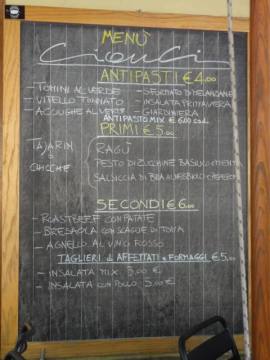 MENÙ
CiauCi
ANTIPASTI €4,00
- TOMINI AL VERDE - SFORMATO DI MELANZANE
- VITELLO TONNATO - INSALATA PRIMAVERA
- ACCIUGHE AL VERDE - GIARDINIERA
ANTIPASTO MIX € 6,00 cad.
PRIMI €5,00
TAJARIN
O
CHICCHE
RAGÙ
PESTO DI ZUCCHINE BASILICO E MENTA
SALSICCIA DI BRA AL NEBBIOLO E
SECONDI €6,00
- ROASTBEEF CON PATATE
- BRESAOLA CON SCAGLIE DI TOMA
- AGNELLO AL VINO ROSSO
TAGLIERI di AFFETTATI e FORMAGGI €5,00
- INSALATA MIX 3,00 €
- INSALATA CON POLLO 5,00 €